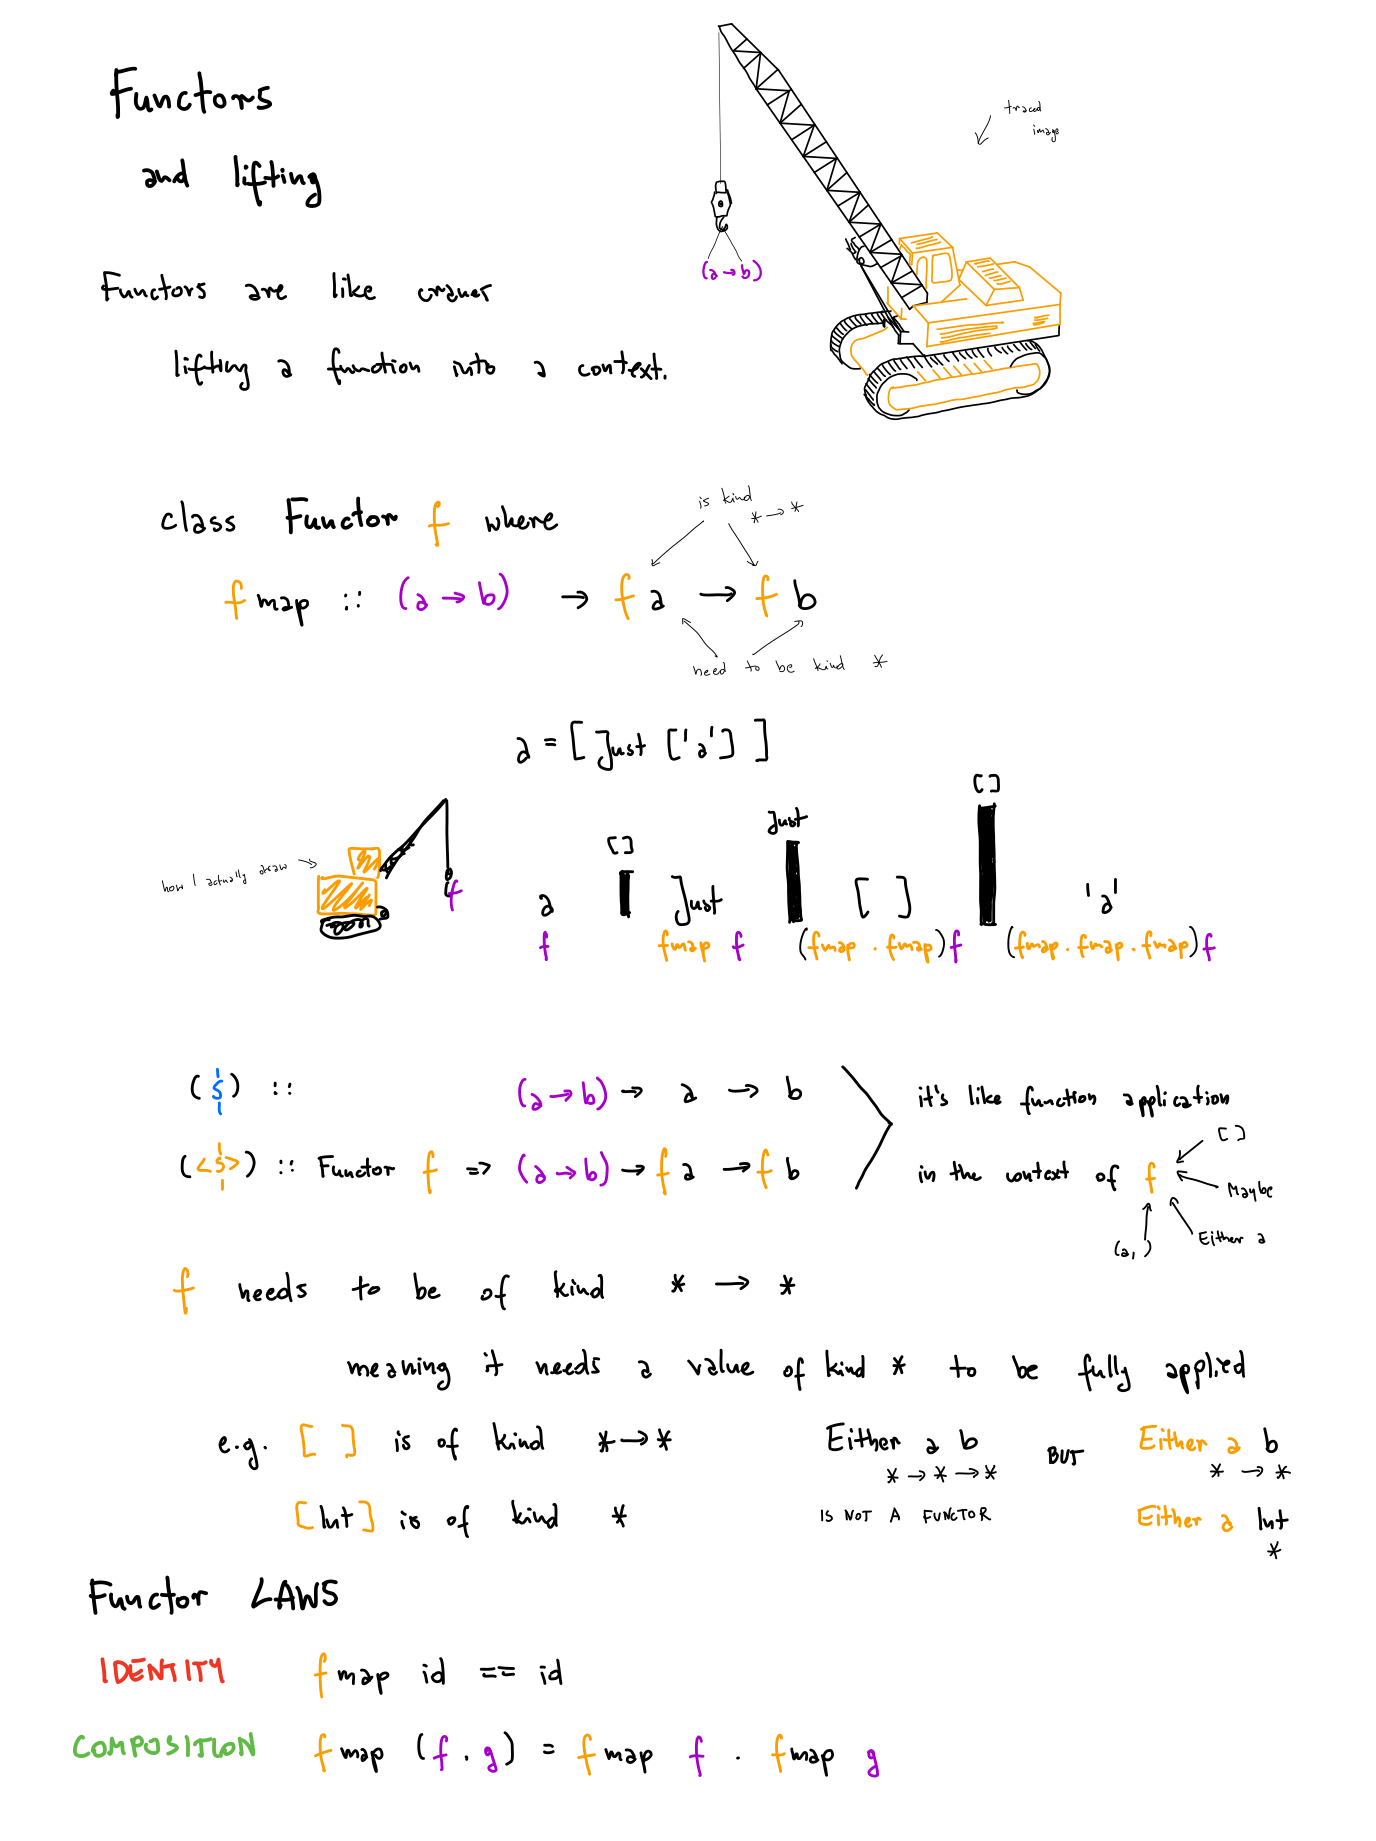 Functors
and lifting
traced
image
(a → b)
Functors are like cranes
lifting a function into a context.
is kind
* → *
class Functor f where
fmap :: (a → b) → f a → f b
need to be kind *
a = [ Just ['a'] ]
how I actually draw
f
[] Just []
a Just [ ] 'a'
f fmap f (fmap . fmap) f (fmap . fmap . fmap) f
($) :: (a → b) → a → b
it's like function application
(<$>) :: Functor f => (a → b) → f a → f b
in the context of f
[]
Maybe
Either a
(a, )
f needs to be of kind * → *
meaning it needs a value of kind * to be fully applied
e.g. [ ] is of kind * → *
[Int] is of kind *
Either a b
* → * → *
IS NOT A FUNCTOR
BUT
Either a b
* → *
Either a Int
*
Functor LAWS
IDENTITY fmap id == id
COMPOSITION fmap (f . g) = fmap f . fmap g